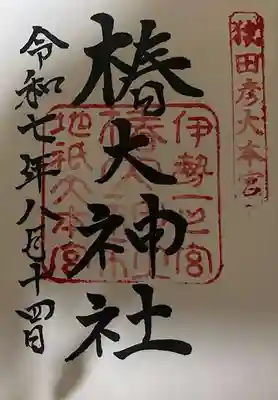 猿田彦大本宮
椿大神社
伊勢一之宮
地祇大本宮
令和七年八月十四日